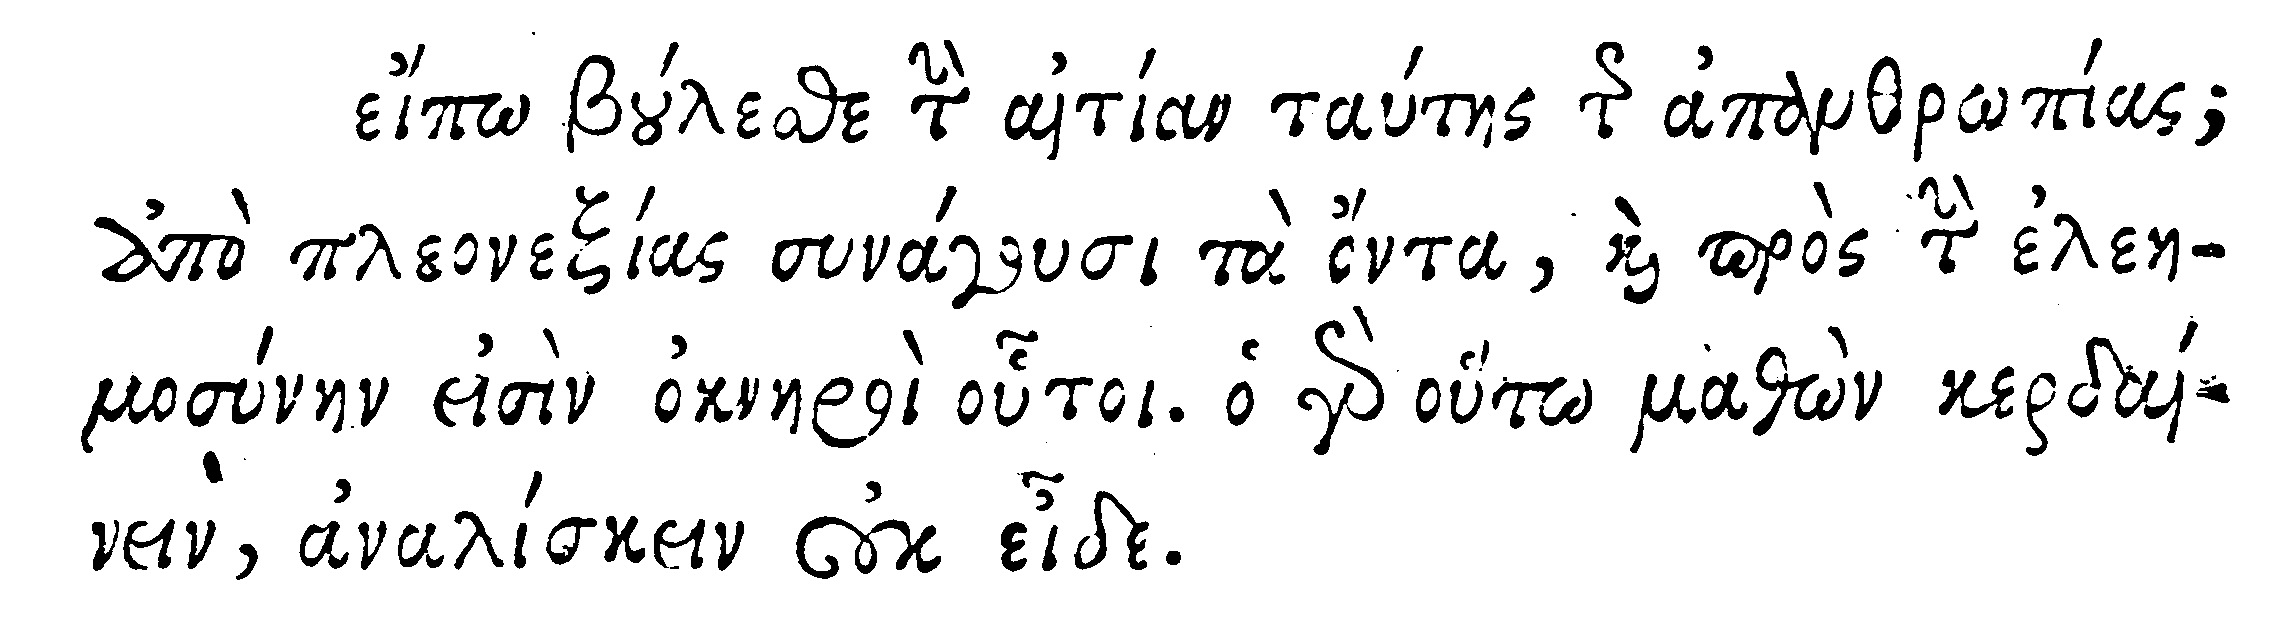 εἴπω βούλεσθε τὴν αἰτίαν ταύτης τῆς ἀπανθρωπίας;
ἀπὸ πλεονεξίας συνάγουσι τὰ ὄντα, καὶ πρὸς τὴν ἐλεη-
μοσύνην εἰσὶν ὀκνηροὶ οὗτοι. ὁ γὰρ οὕτω μαθὼν κερδαί-
νειν, ἀναλίσκειν οὐκ εἶδε.